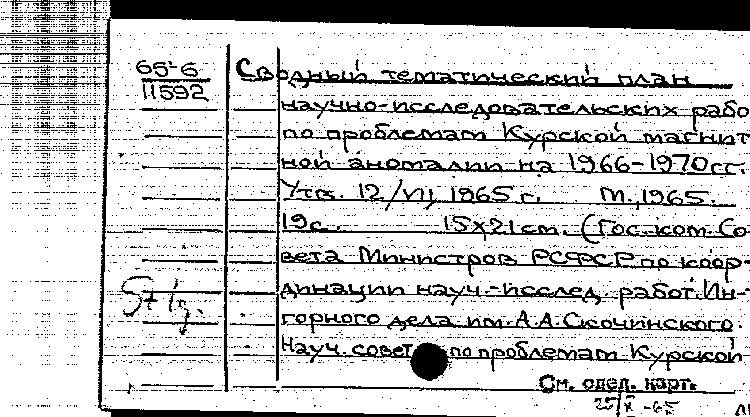 65-6
11592
Сводный тематический план
научно-исследовательских рабо
по проблемам Курской магнит
ной аномалии на 1966-1970гг.
Утв. 12/VII 1965 г. М., 1965.
19с. 15х21см. (Гос. ком. Со-
вета Министров РСФСР по коор-
динации науч.-исслед. работ. Ин-
горного дела им. А.А. Скочинского.
Науч. совет по проблемам Курской
См. след. карт.